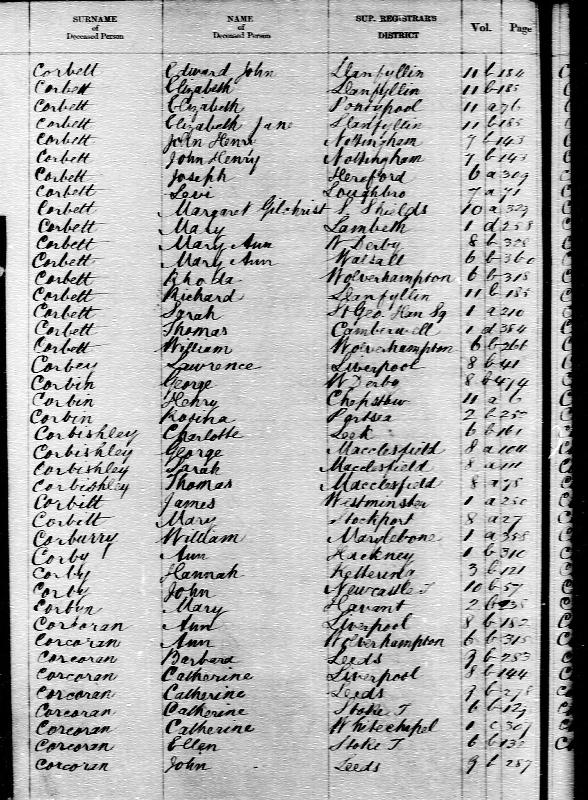 SURNAME of Deceased Person NAME of Deceased Person SUP. REGISTRAR'S DISTRICT Vol. Page
Corbett Edward John Llanfyllin 11 b 184
Corbett Elizabeth Llanfyllin 11 b 185
Corbett Elizabeth Pontypool 11 a 76
Corbett Elizabeth Jane Llanfyllin 11 b 185
Corbett John Henry Nottingham 7 b 143
Corbett John Henry Nottingham 7 b 143
Corbett Joseph Hereford 6 a 309
Corbett Levi Loughbro 7 a 71
Corbett Margaret Gilchrist S. Shields 10 a 329
Corbett Mary Lambeth 1 d 258
Corbett Mary Ann W Derby 8 b 328
Corbett Mary Ann Walsall 6 b 360
Corbett Rhoda Wolverhampton 6 b 318
Corbett Richard Llanfyllin 11 b 185
Corbett Sarah St Geo. Han Sq 1 a 210
Corbett Thomas Camberwell 1 d 384
Corbett William Wolverhampton 6 b 266
Corbey Lawrence Liverpool 8 b 41
Corbin George W Derby 8 b 474
Corbin Henry Chepstow 11 a 6
Corbin Rosina Portsea 2 b 250
Corbishley Charlotte Leek 6 b 161
Corbishley George Macclesfield 8 a 104
Corbishley Sarah Macclesfield 8 a 111
Corbishley Thomas Macclesfield 8 a 75
Corbitt James Westminster 1 a 250
Corbitt Mary Stockport 8 a 27
Corburry William Marylebone 1 a 358
Corby Ann Hackney 1 b 310
Corby Hannah Kettering 3 b 121
Corby John Newcastle T 10 b 57
Corbyn Mary Havant 2 b 238
Corcoran Ann Liverpool 8 b 182
Corcoran Ann Wolverhampton 6 b 315
Corcoran Barbara Leeds 9 b 283
Corcoran Catherine Liverpool 8 b 144
Corcoran Catherine Leeds 9 b 278
Corcoran Catherine Stoke T 6 b 129
Corcoran Catherine Whitechapel 1 c 307
Corcoran Ellen Stoke T 6 b 132
Corcoran John Leeds 9 b 287